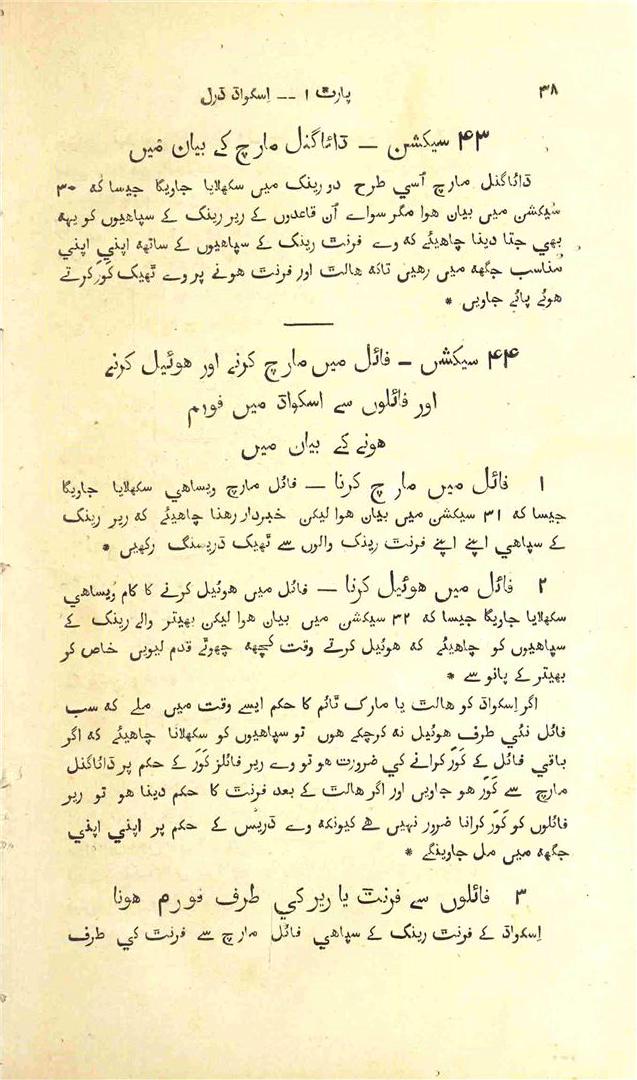 ۳۸
پارٹ ۱ -- اِسکواڈ ڈرل
۴۳ سیکشن — ڈائاگنل مارچ کے بیان میں
ڈائاگنل مارچ اُسي طرح دو رینک میں سکھلایا جاویگا جیسا کہ ۳۰
سیکشن میں بیان ہوا مگر سواے اُن قاعدوں کے ریر رینک کے سپاهیوں کو یہه
بهي جتا دینا چاهیئے کہ وے فرنٹ رینک کے سپاهیوں کے ساتهه اپني اپني
مُناسب جگهه میں رهیں تاکہ هالٹ اور فرنٹ هونے پر وے ٹهیک کَوَر کرتے
هوئے پائے جاویں *
۴۴ سیکشن — فائل میں مارچ کرنے اور هوئیل کرنے
اور فائلوں سے اسکواڈ میں فورم
هونے کے بیان میں
۱ فائل میں مارچ کرنا — فائل مارچ ویساهي سکھلایا جاویگا
جیسا کہ ۳۱ سیکشن میں بیان هوا لیکن خبردار رهنا چاهیئے کہ ریر رینک
کے سپاهي اپنے اپنے فرنٹ رینک والوں سے ٹهیک ڈریسنگ رکهیں *
۲ فائل میں هوئیل کرنا — فائل میں هوئیل کرنے کا کام ویساهي
سکھلایا جاویگا جیسا کہ ۳۲ سیکشن میں بیان هوا لیکن بهیتر والے رینک کے
سپاهیوں کو چاهیئے کہ هوئیل کرتے وقت کُچهه چهوٹے قدم لیویں خاص کر
بهیتر کے پانو سے *
اگر اِسکواڈ کو هالٹ یا مارک ٹائم کا حکم ایسے وقت میں ملے کہ سب
فائل نئي طرف هوئیل نہ کرچکے هوں تو سپاهیوں کو سکهلانا چاهیئے کہ اگر
باقي فائل کے کَوَر کرانے کي ضرورت هو تو وے ریر فائلز کَوَر کے حکم پر ڈائاگنل
مارچ سے کَوَر هو جاویں اور اگر هالٹ کے بعد فرنٹ کا حکم دینا هو تو ریر
فائلوں کو کَوَر کرانا ضرور نہیں هے کیونکہ وے ڈریس کے حکم پر اپني اپني
جگهه میں مل جاوینگے *
۳ فائلوں سے فرنٹ یا ریر کي طرف فورم هونا
اِسکواڈ کے فرنٹ رینک کے سپاهي فائل مارچ سے فرنٹ کي طرف